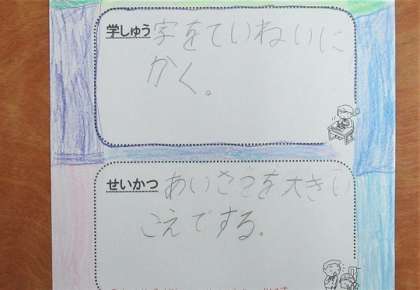 学しゅう 字をていねいに
かく。
せいかつ あいさつを大きい
こえでする。